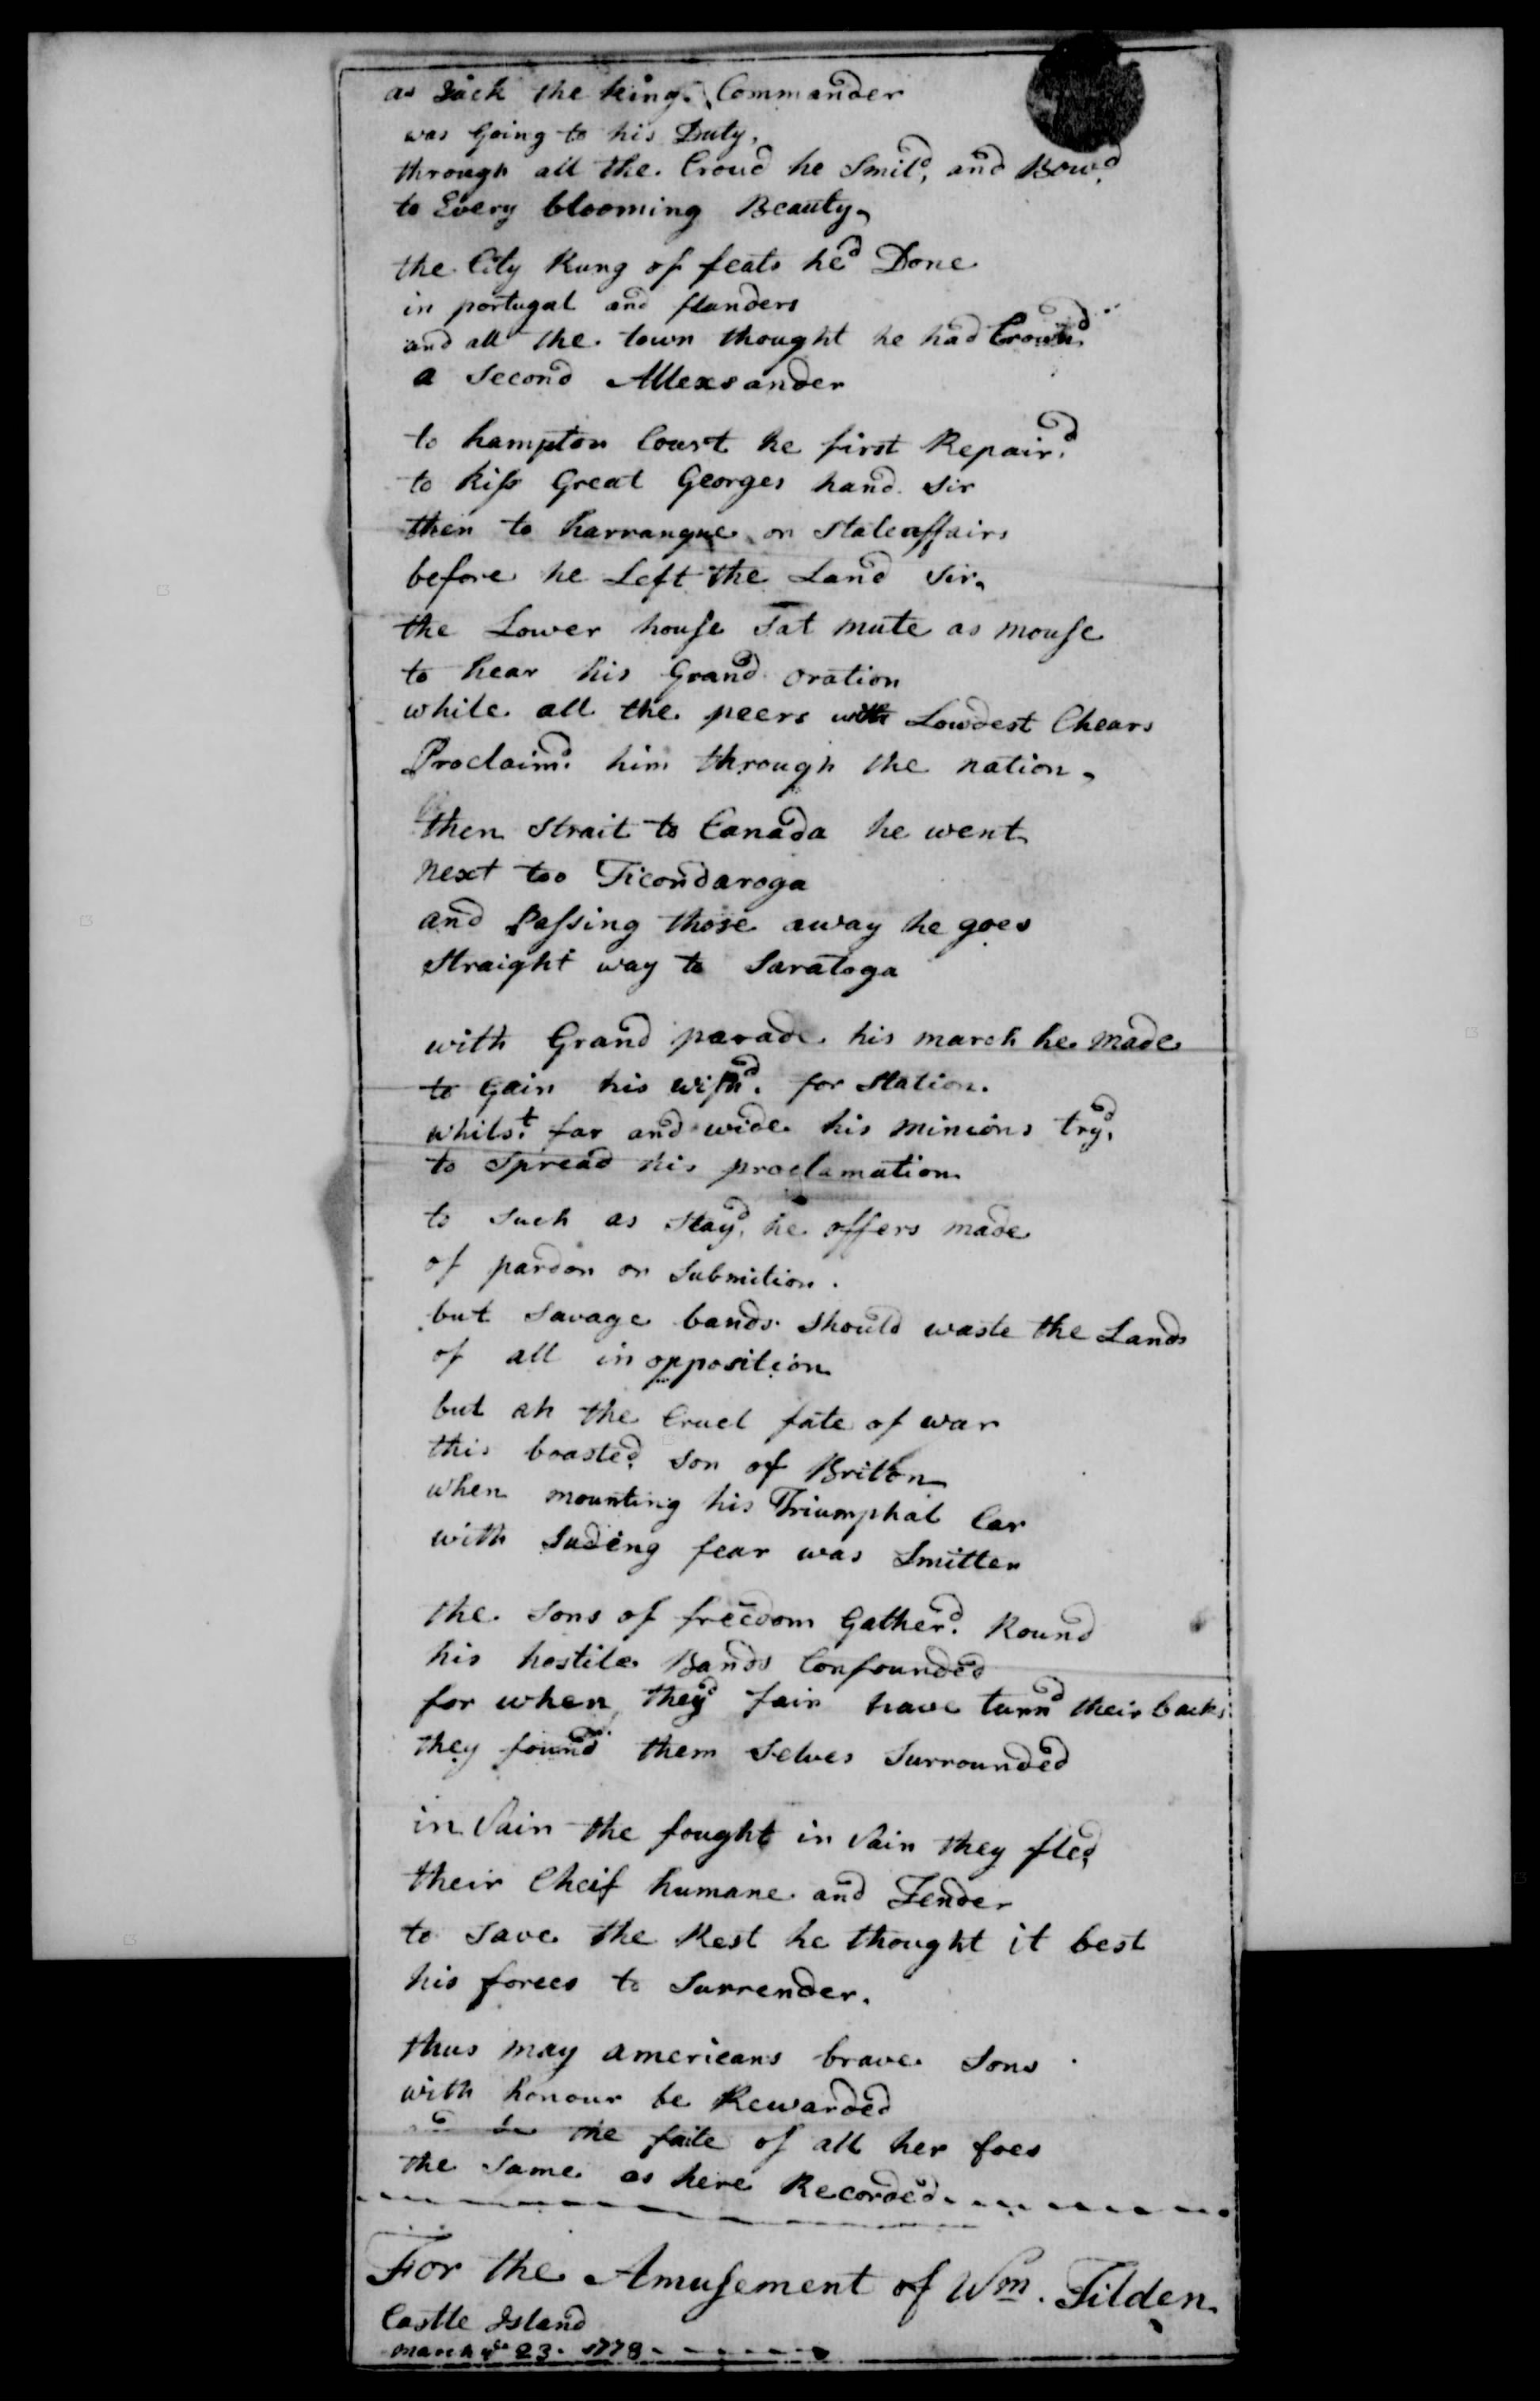 as Jack the kings Commander
was Going to his Duty,
through all the Croud he Smild, and Bowd
to Every blooming Beauty,
the City Rung of feats he'd Done
in portugal and flanders
and all the town thought he had Crownd
a Second Allexsander
to hampton Court he first Repaird
to kiss Great Georges hand Sir
then to harrangue on State affairs
before he Left the Land Sir,
the Lower house Sat mute as mouse
to hear his Grand oration
while all the peers with Lowdest Chears
Proclaimd him through the nation,
then Strait to Canada he went
next too Ticondaroga
and Passing those away he goes
Straight way to Saratoga
with Grand parade his march he made
to Gain his wishd for Station.
whilst far and wide his minions tryd
to Spread his proclamation
to Such as Stayd he offers made
of pardon on Submition.
but Savage bands Should waste the Lands
of all in opposition
but ah the Cruel fate of war
this boasted Son of Briton
when mounting his Triumphal Car
with Suding fear was Smitten
the Sons of freedom Gatherd Round
his hostile Bands Confounded
for when they'd fain have turnd their backs
they found them Selves Surrounded
in Vain the fought in Vain they fled
their Cheif humane and Tender
to Save the Rest he thought it best
his forces to Surrender.
thus may americans brave Sons
with honour be Rewarded
be the fate of all her foes
the Same as here Recorded
For the Amusement of Wm. Tilden
Castle Island
march ye 23. 1778